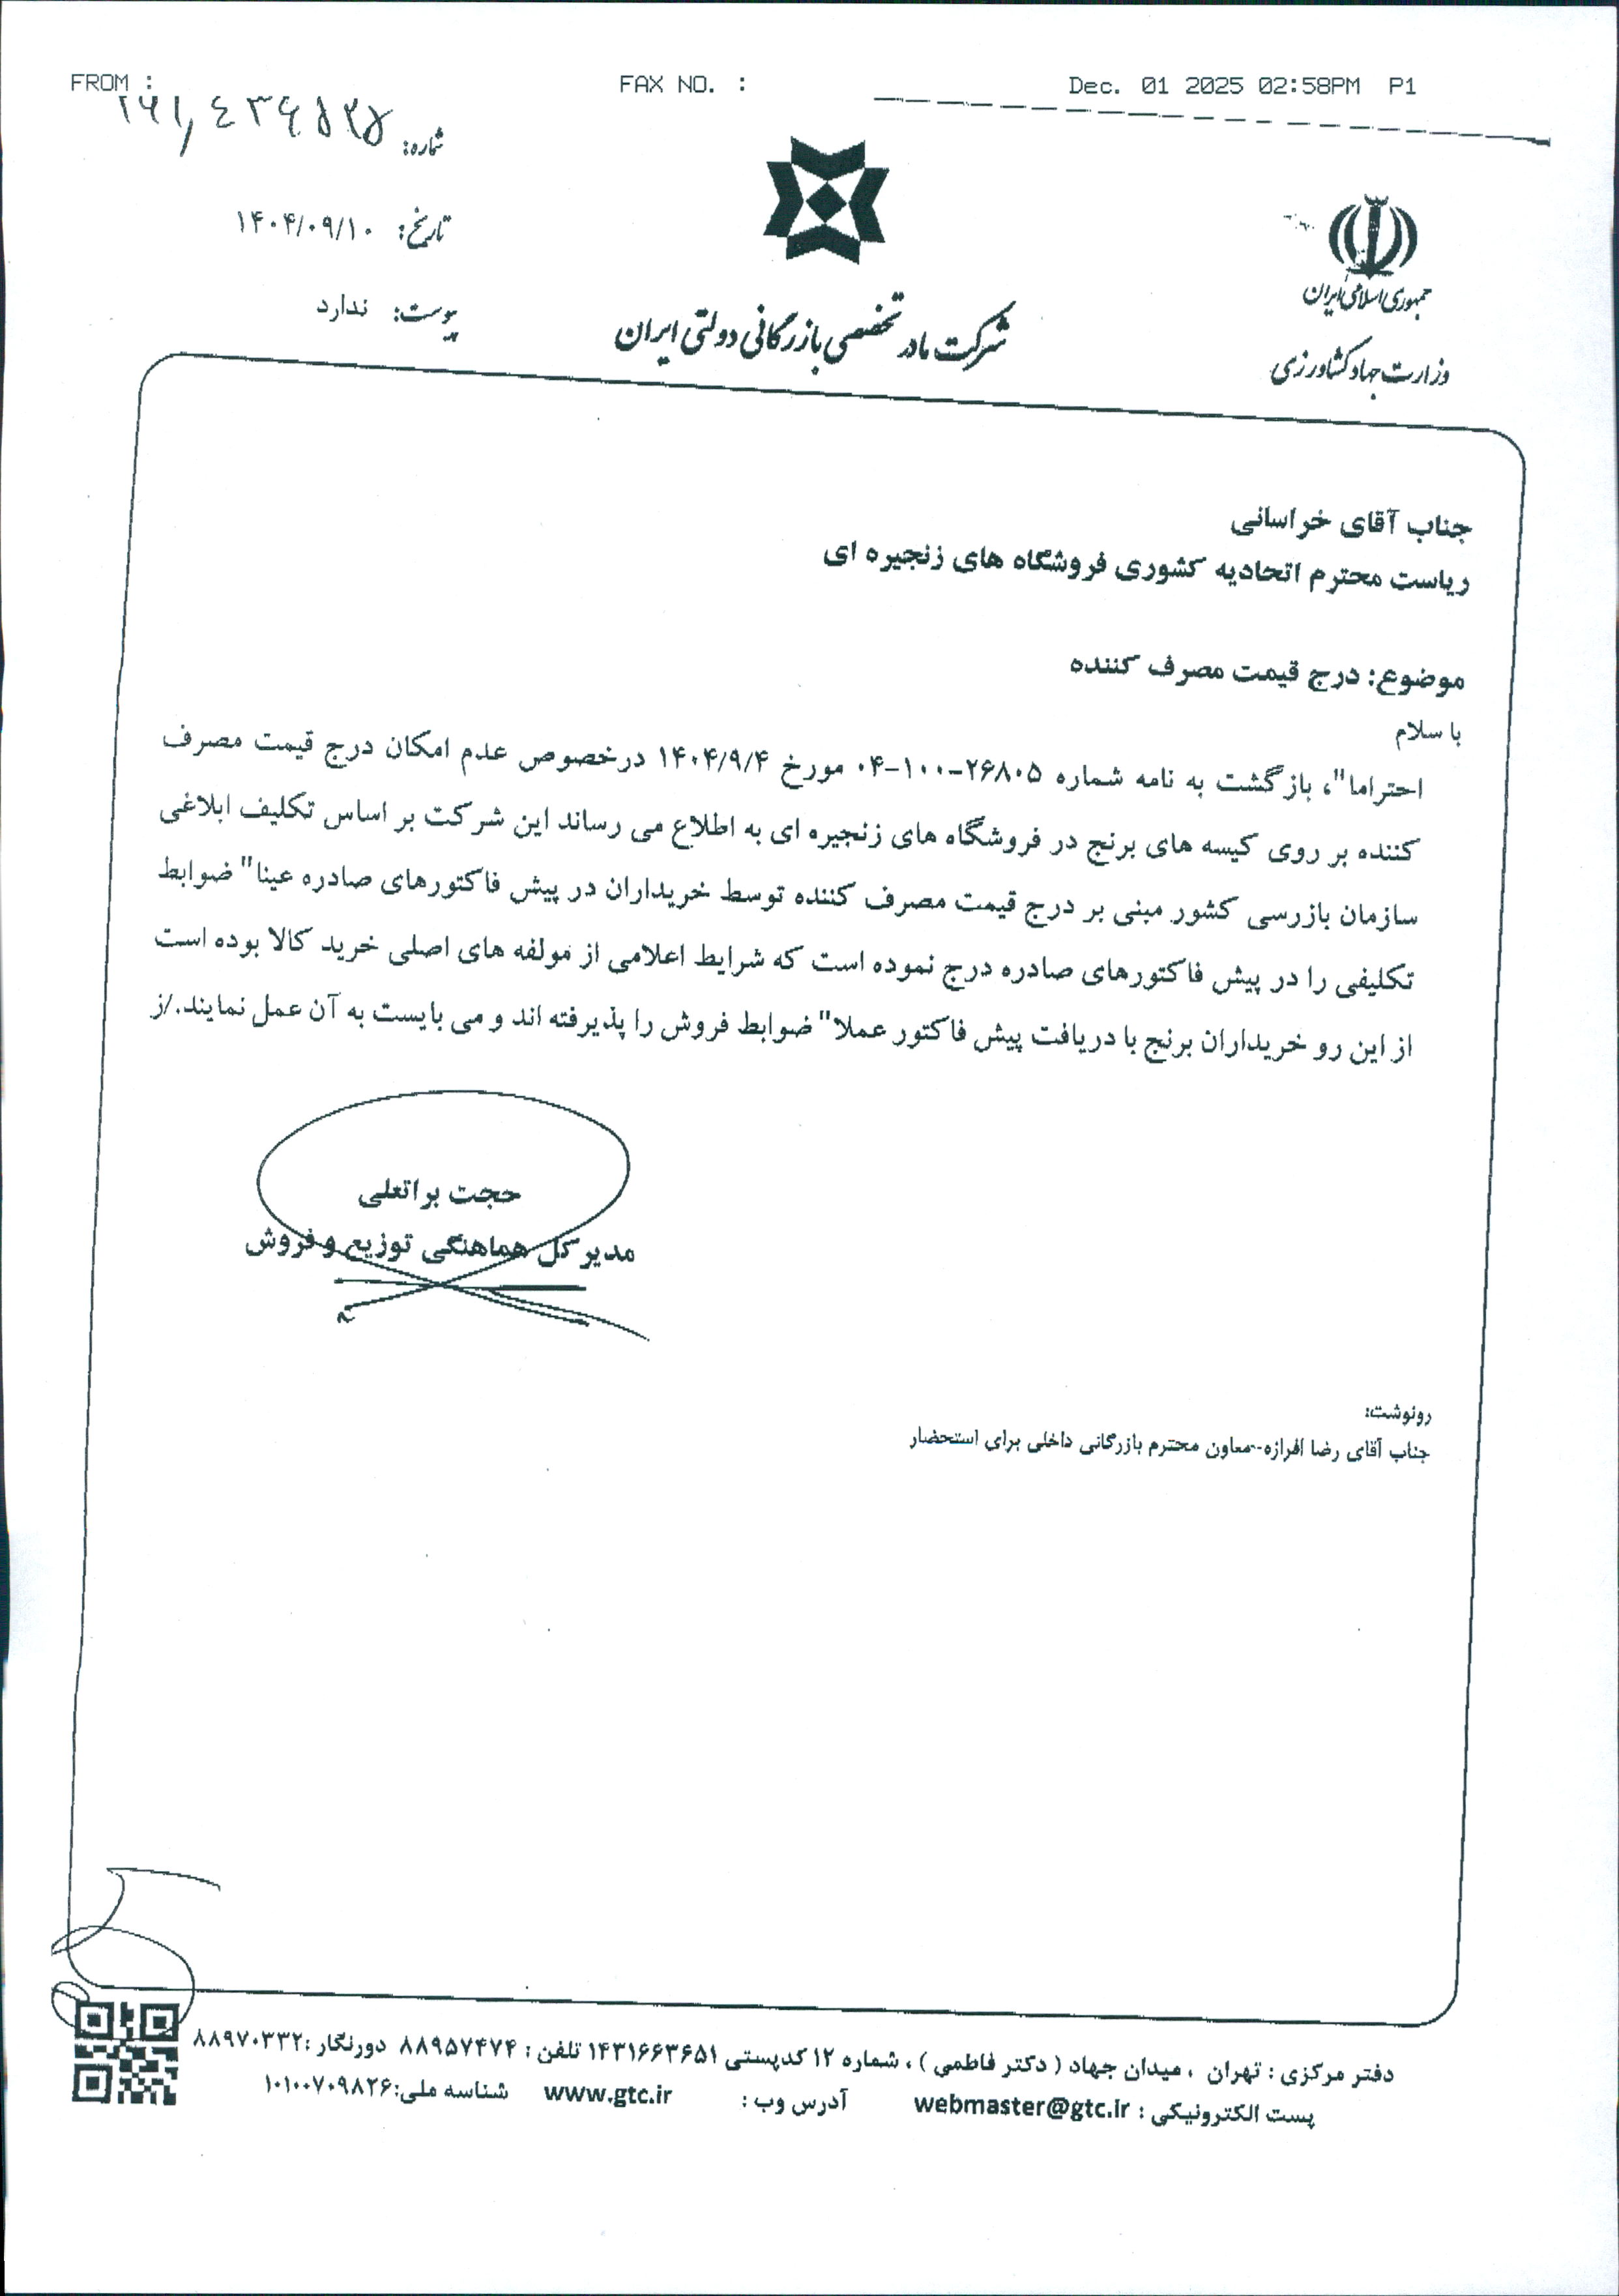 FROM :
FAX NO. :
Dec. 01 2025 02:58PM P1
شماره:
تاریخ: ۱۴۰۴/۰۹/۱۰
پیوست: ندارد
جمهوری اسلامی ایران
وزارت جهاد کشاورزی
شرکت مادر تخصصی بازرگانی دولتی ایران
جناب آقای خراسانی
ریاست محترم اتحادیه کشوری فروشگاه های زنجیره ای
موضوع: درج قیمت مصرف کننده
با سلام
احتراما"، بازگشت به نامه شماره ۲۶۸۰۵-۱۰۰-۰۴ مورخ ۱۴۰۴/۹/۴ درخصوص عدم امکان درج قیمت مصرف
کننده بر روی کیسه های برنج در فروشگاه های زنجیره ای به اطلاع می رساند این شرکت بر اساس تکلیف ابلاغی
سازمان بازرسی کشور مبنی بر درج قیمت مصرف کننده توسط خریداران در پیش فاکتورهای صادره عینا" ضوابط
تکلیفی را در پیش فاکتورهای صادره درج نموده است که شرایط اعلامی از مولفه های اصلی خرید کالا بوده است
از این رو خریداران برنج با دریافت پیش فاکتور عملا" ضوابط فروش را پذیرفته اند و می بایست به آن عمل نمایند./ز
حجت براتعلی
مدیر کل هماهنگی توزیع و فروش
رونوشت:
جناب آقای رضا افرازه-معاون محترم بازرگانی داخلی برای استحضار
دفتر مرکزی : تهران ، میدان جهاد ( دکتر فاطمی ) ، شماره ۱۲ کدپستی ۱۴۳۱۶۶۳۶۵۱ تلفن : ۸۸۹۵۷۴۷۴ دورنگار :۸۸۹۷۰۳۳۲
پست الکترونیکی : webmaster@gtc.ir آدرس وب : www.gtc.ir شناسه ملی:۱۰۱۰۰۷۰۹۸۲۶